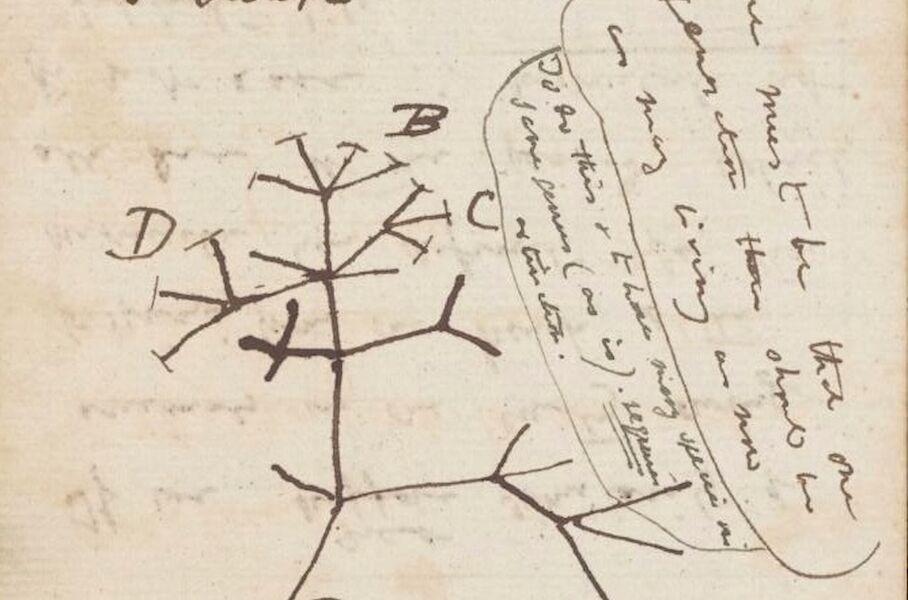 B
C
D
must be that one
generation then should be
as many living as now
To do this & to have many species in
same genus (as is). requires
extinction.